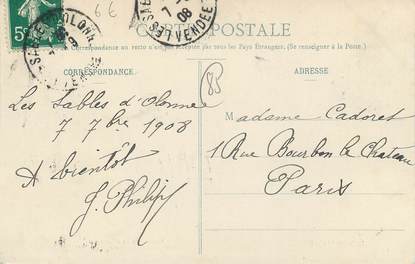 6€
5c
CARTE POSTALE
La Correspondance au recto n'est pas acceptée par tous les Pays Etrangers. (Se renseigner à la Poste.)
CORRESPONDANCE
ADRESSE
85
Les Sables d'Olonne
7 7bre 1908
A bientôt
J. Philip
Madame Cadoret
1 Rue Bourbon le Chateau
Paris